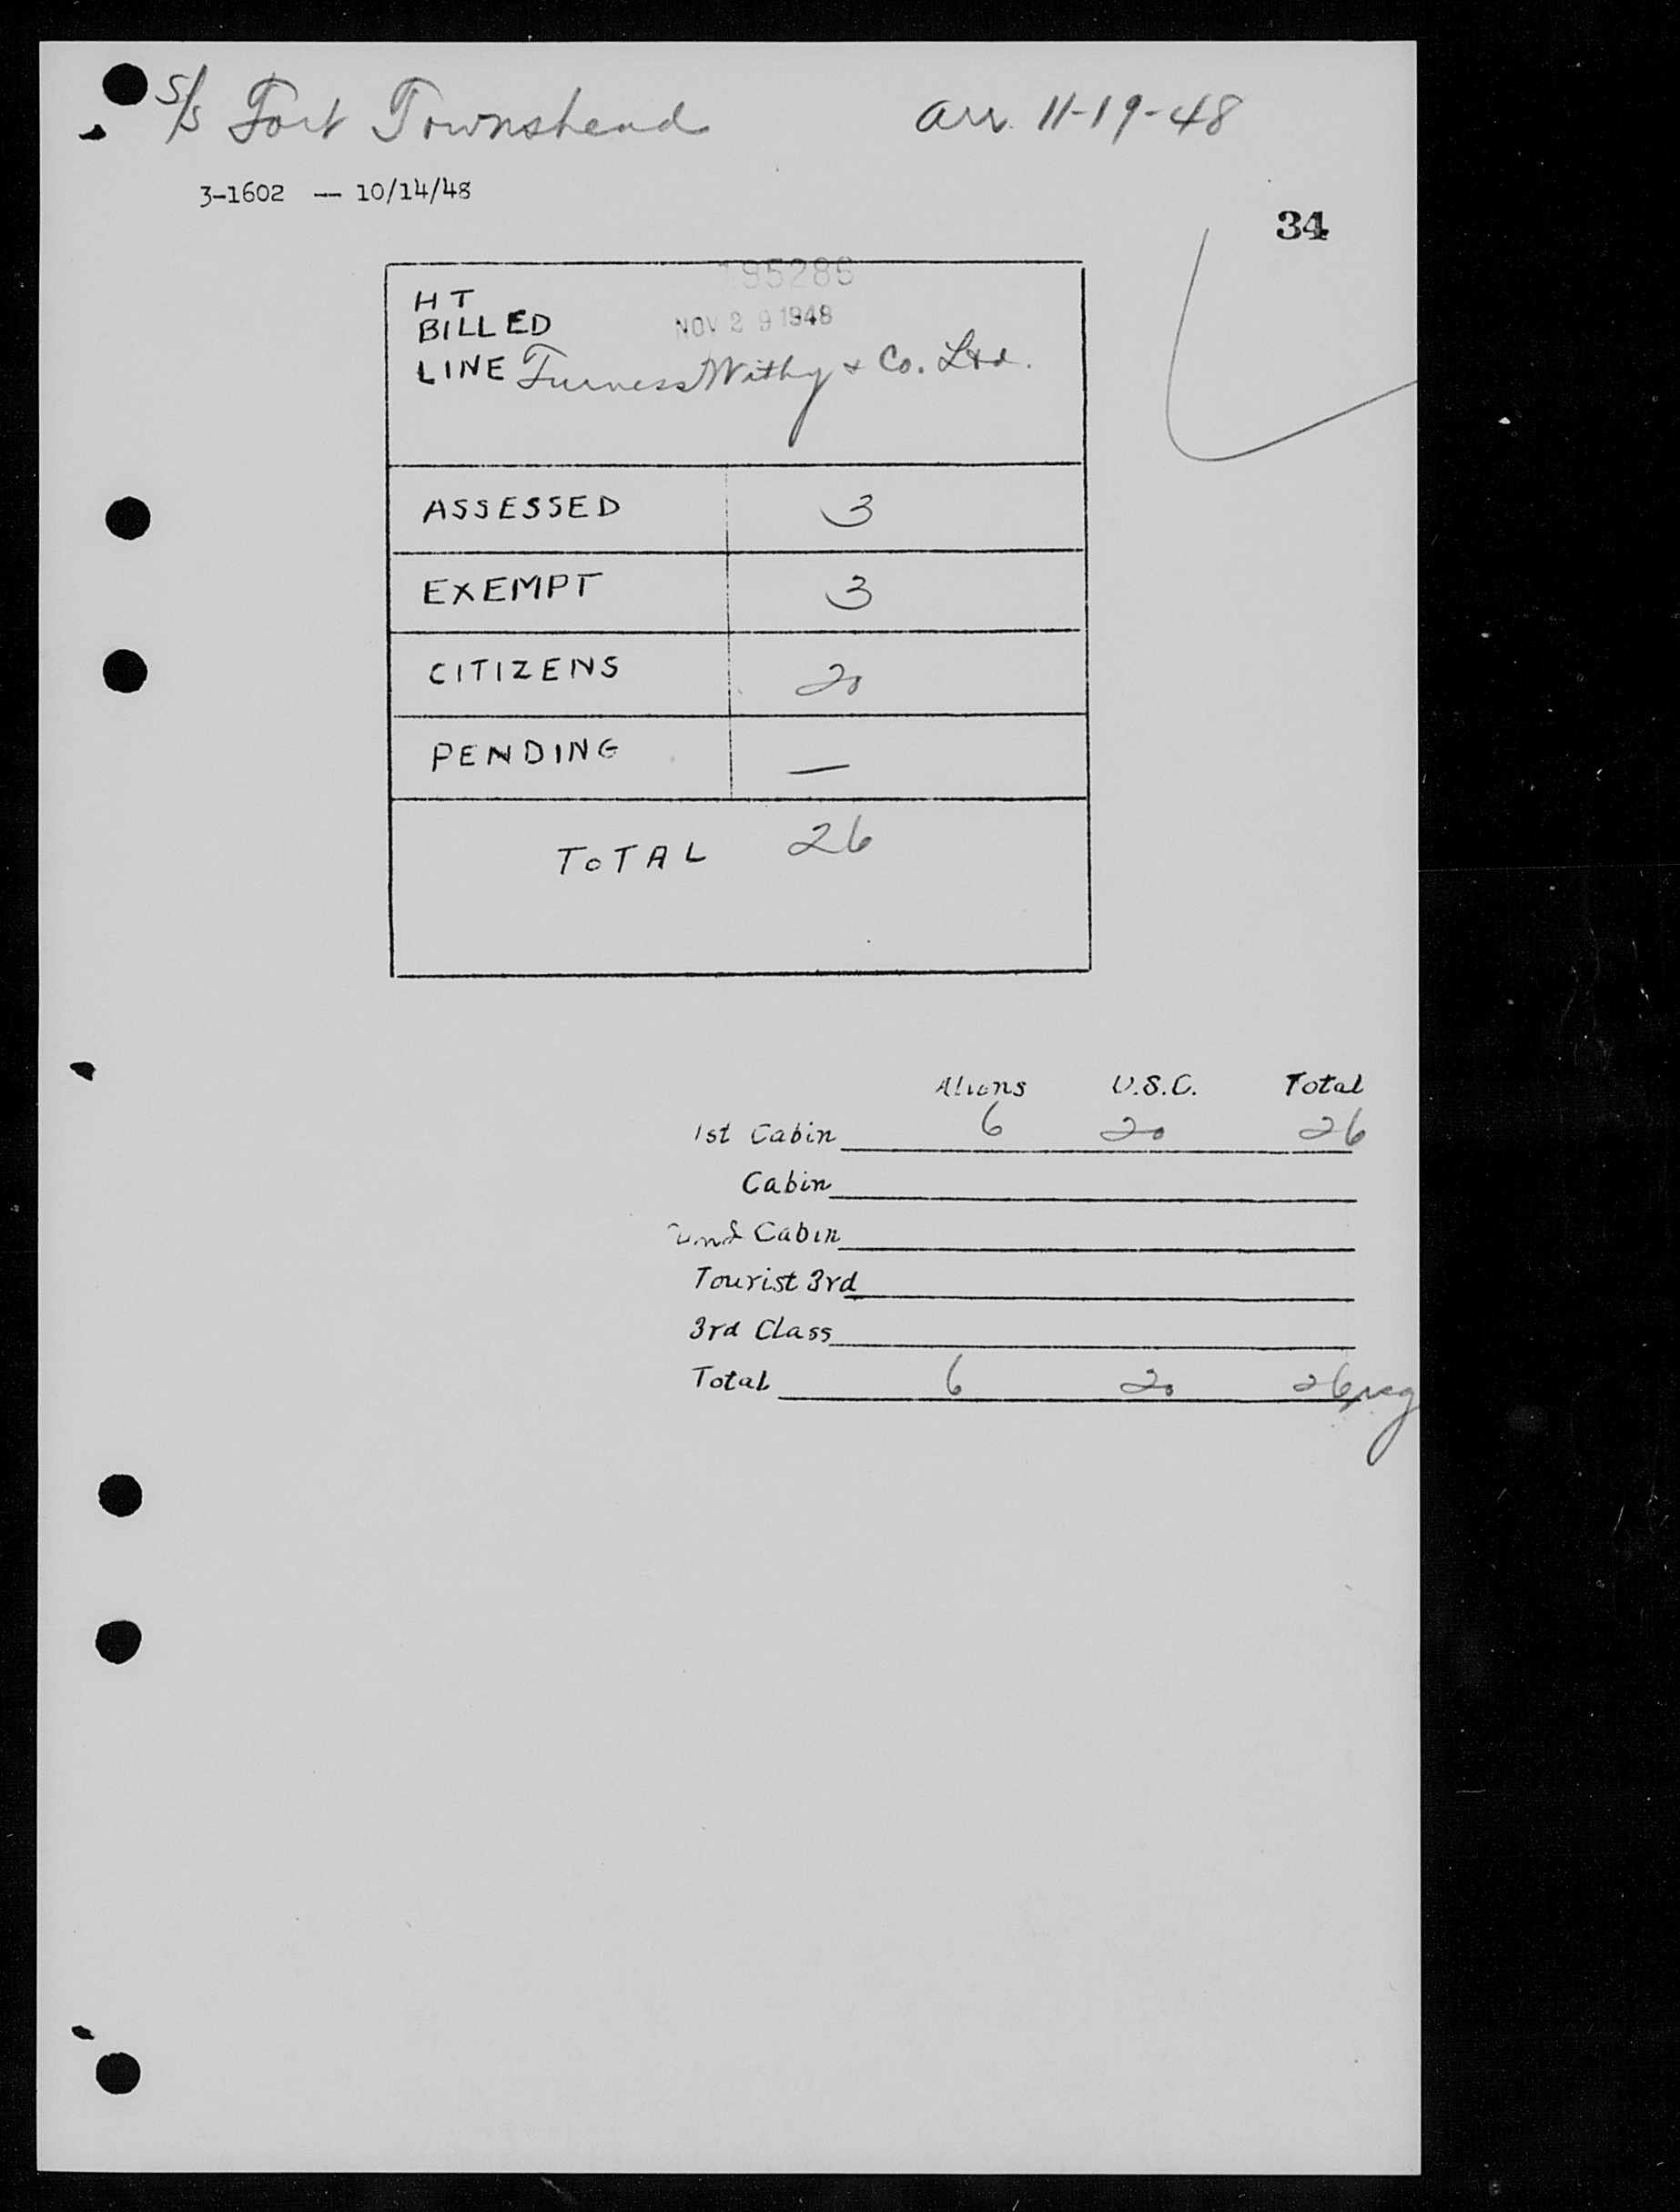 S/S Fort Townshend arr. 11-19-48
3-1602 — 10/14/48
34
195286
HT
BILLED NOV 29 1948
LINE Furness Withy & Co. Ltd.
ASSESSED 3
EXEMPT 3
CITIZENS 20
PENDING —
TOTAL 26
Aliens U.S.C. Total
1st Cabin 6 20 26
Cabin
Cabin
Tourist 3rd
3rd Class
Total 6 20 26